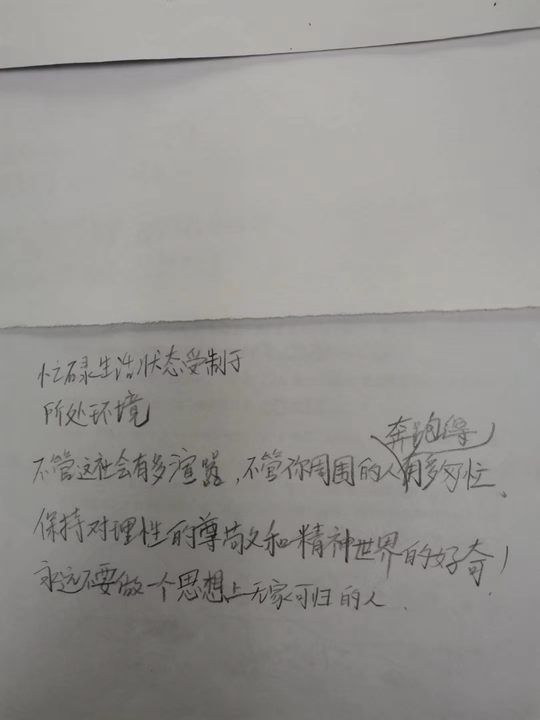 忙碌生活状态受制于
所处环境
奔跑得
不管这社会有多渲嚣,不管你周围的人有多匆忙、
保持对理性的尊尚又和精神世界的好奇!
永远不要做一个思想上无家可归的人.